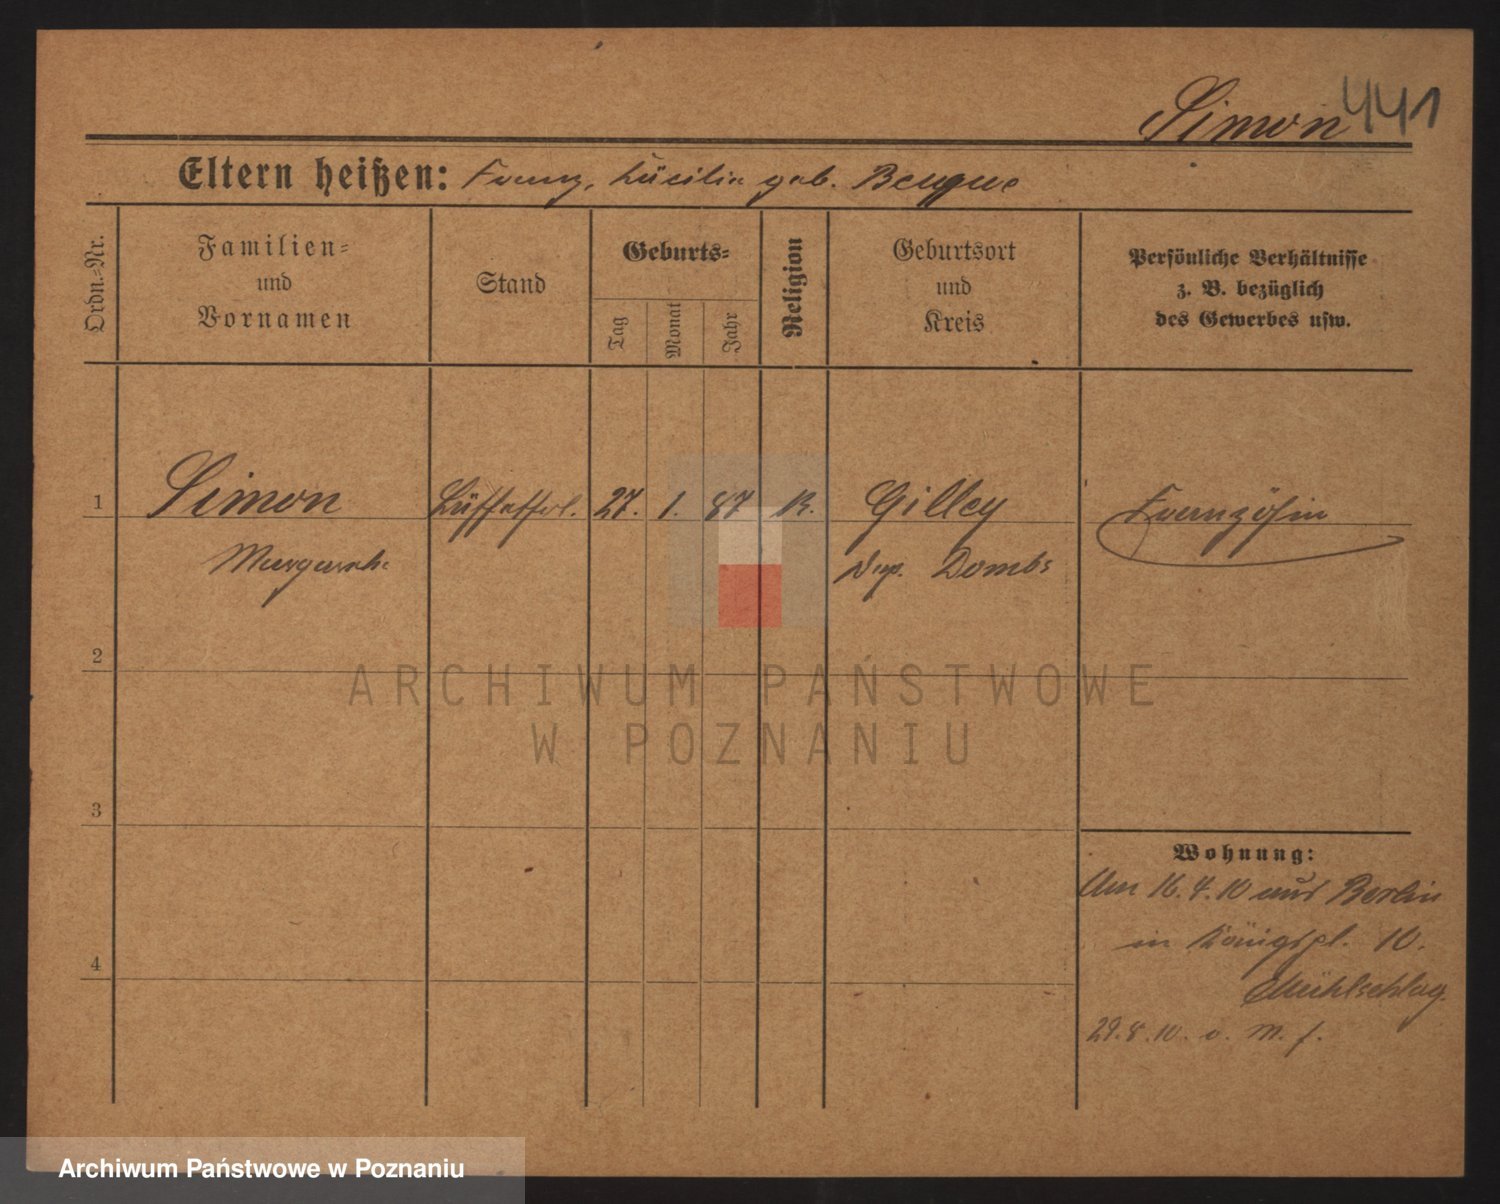 Simon 441
Eltern heißen: Franz, Cäcilia geb. Beugue
Ordn.-Nr.
Familien-
und
Vornamen
Stand
Geburts-
Tag
Monat
Jahr
Religion
Geburtsort
und
Kreis
Persönliche Verhältnisse
z. B. bezüglich
des Gewerbes usw.
1 Simon 27. 1. 87 K. Gilley Französin
Dep. Dombs
2
3
4
Wohnung:
Am 16.4.10 aus Berlin
in Königspl. 10.
Mühlschlag.
29.8.10. o. M. f.
ARCHIWUM PAŃSTWOWE
W POZNANIU
Archiwum Państwowe w Poznaniu